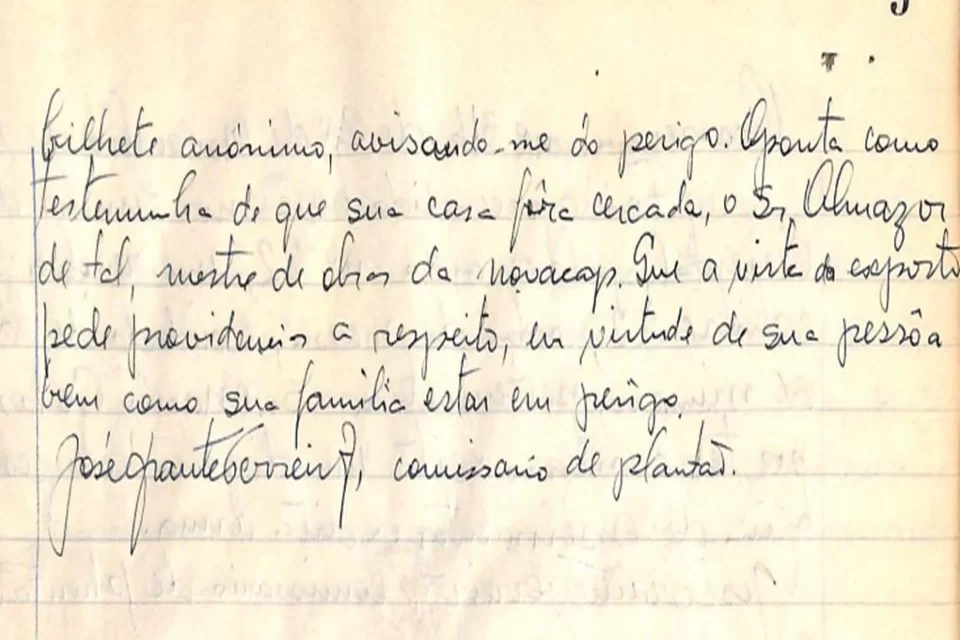 bilhete anônimo, avisando-me do perigo. Aponta como
testemunha de que sua casa fôra cercada, o Sr. Almazor
de tal, mestre de obras da novacap. Que a vista do exposto
pede providencias a respeito, em virtude de sua pessôa
bem como sua familia estar em perigo.
José, comissario de plantão.